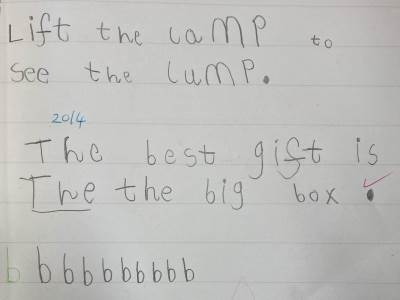 Lift the laMP to
see the luMP.
2014
The best gift is
The the big box.
b b b b b b b b b b